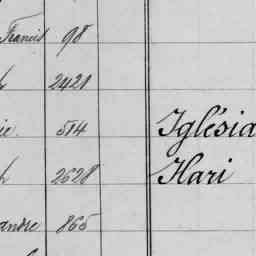 Francis 98
h 2421
ie. 514 Iglésia
h 2628 Hari
andre 865